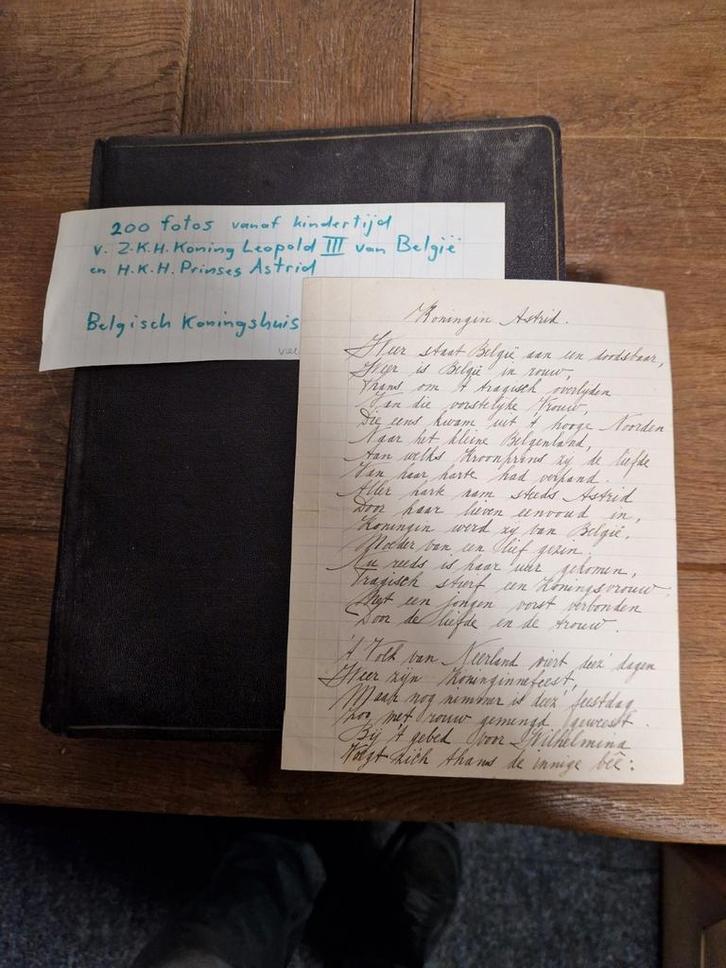 200 fotos vanaf kindertijd
v. Z.K.H. Koning Leopold III van België
en H.K.H. Prinses Astrid
Belgisch Koningshuis
Koningin Astrid.
Weer staat België aan een doodsbaar,
Weer is België in rouw,
Thans om 't tragisch overlijden
Van die vorstelijke Vrouw,
Die eens kwam uit 't hooge Noorden
Naar het kleine Belgenland,
Aan welks Kroonprins zij de liefde
Van haar harte had verpand.
Aller harte nam steeds Astrid
Door haar lieven eenvoud in,
Koningin werd zij van België,
Moeder van een lief gezin,
Nu reeds is haar uur gekomen,
Tragisch stierf een Koningsvrouw
Met een jongen vorst verbonden
Door de liefde en de trouw.
't Volk van Neerland viert deez' dagen
Weer zijn Koninginnefeest,
Maar nog nimmer is deez' feestdag
Zoo met rouw gemengd geweest.
Bij 't gebed voor Wilhelmina
Voegt zich thans de innige beê: